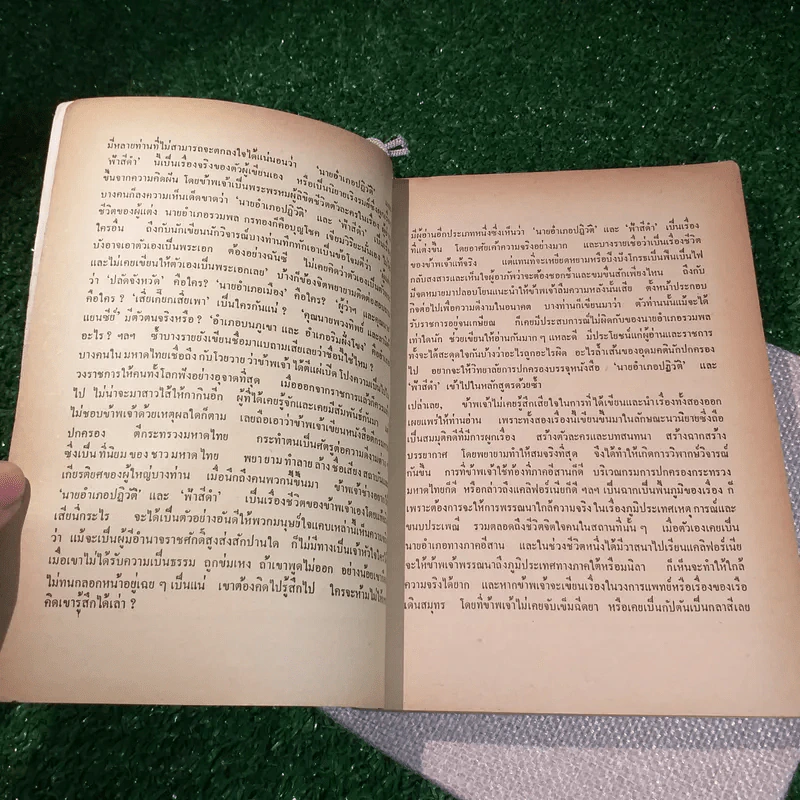 มีหลายท่านที่ไม่สามารถจะตกลงใจได้แน่นอนว่า 'นายอำเภอปฏิวัติ'
'ฟ้าสีดำ' นี้เป็นเรื่องจริงของตัวผู้เขียนเอง หรือเป็นนิยายเริงรมย์
ขึ้นจากความคิดฝัน โดยข้าพเจ้าเป็นพระพรหมผู้ลิขิตชีวิตตัวละครในเรื่อง
บางคนก็ลงความเห็นเด็ดขาดว่า 'นายอำเภอปฏิวัติ' และ 'ฟ้าสีดำ'
ชีวิตของผู้แต่ง นายอำเภอรวมพล กรทองก็คือบุญโชค เจียมวิริยะนั่นเอง
ใครอื่น ถึงกับนักเขียนนักวิจารณ์บางท่านที่ทักเอาเป็นข้อโจมตีว่า
บังอาจเอาตัวเองเป็นพระเอก ต้องอย่างฉันซี ไม่เคยคิดว่าตัวเองเป็น
และไม่เคยเขียนให้ตัวเองเป็นพระเอกเลย' บ้างก็ข้องจิตพยายามคิดต่อ
ว่า 'ปลัดจังหวัด' คือใคร? 'นายอำเภอเมือง' คือใคร? 'ผู้ว่าฯ'
คือใคร? 'เสี่ยเกี๊ยกเสี่ยเพา' เป็นใครกันแน่? 'คุณนายพวงทิพย์
แยนซีย์' มีตัวตนจริงหรือ? 'อำเภอบนภูเขา และ อำเภอริมฝั่งโขง'
อะไร? ฯลฯ ซ้ำบางรายยังเขียนชื่อมาแบบถามเสียเลยว่าชื่อนี้ใช่ไหม?
บางคนในมหาดไทยเชื่อถึงกับโวยวายว่าข้าพเจ้าได้ตีแผ่เปิดโปงความ
วงราชการให้คนทั้งโลกฟังอย่างอุจาดที่สุด เมื่อออกจากราชการแล้ว
ไป ไม่น่าจะมาสาวไส้ให้กากินอีก ผู้ที่ได้เคยรู้จักและเคยมีสัมพันธ์กันมา
ไม่ชอบข้าพเจ้าด้วยเหตุผลใดก็ตาม เลยถือเอาว่าข้าพเจ้าเขียนหนังสือ
ปกครอง ตีกระทรวงมหาดไทย กระทำตนเป็นศัตรูต่อความดีงาม
ซึ่งเป็นที่นิยมของชาวมหาดไทย พยายามทำลายล้างชื่อเสียง
เกียรติยศของผู้ใหญ่บางท่าน เมื่อนึกถึงคนพวกนี้ขึ้นมา ข้าพเจ้า
'นายอำเภอปฏิวัติ' และ 'ฟ้าสีดำ' เป็นเรื่องชีวิตของข้าพเจ้าเองโดย
เสียนี่กระไร จะได้เป็นตัวอย่างอันดีให้พวกมนุษย์ใจแคบเหล่านี้เห็น
ว่า แม้จะเป็นผู้มีอำนาจราชศักดิ์สูงส่งสักปานใด ก็ไม่มีทางเป็นเจ้าหัวใจ
เมื่อเขาไม่ได้รับความเป็นธรรม ถูกข่มเหง ถ้าเขาพูดไม่ออก อย่างน้อย
ไม่ทนกลอกหน้าอยู่เฉย ๆ เป็นแน่ เขาต้องคิดไปรู้สึกไป ใครจะห้ามไม่ให้
คิดเขารู้สึกได้เล่า?
มีผู้อ่านอีกประเภทหนึ่งซึ่งเห็นว่า 'นายอำเภอปฏิวัติ' และ 'ฟ้าสีดำ' เป็นเรื่อง
ที่แต่งขึ้น โดยอาศัยเค้าความจริงอย่างมาก และบางรายเชื่อว่าเป็นเรื่องชีวิต
ของข้าพเจ้าแท้จริง แต่แทนที่จะเหยียดหยามหรือขึ้งบึ้งโกรธเป็นฟืนเป็นไฟ
กลับสงสารและเห็นใจผู้อาภัพว่าจะต้องชอกช้ำและขมขื่นสักเพียงไหน ถึงกับ
มีจดหมายมาปลอบโยนแนะนำให้ข้าพเจ้าลืมความหลังนั้นเสีย ตั้งหน้าประกอบ
กิจต่อไปเพื่อความดีงามในอนาคต บางท่านก็เขียนมาว่า ตัวท่านนั้นแม้จะได้
รับราชการอยู่จนเกษียณ ก็เคยมีประสบการณ์ไม่ผิดกับของนายอำเภอรวมพล
เท่าใดนัก ช่วยเขียนให้อ่านกันมาก ๆ เถอะค่ะ มีประโยชน์แก่ผู้อ่านและราชการ
ทั้งจะได้สะดุดใจกันบ้างว่าอะไรถูกอะไรผิด อะไรล้ำเส้นของอุดมคตินักปกครอง
ไป อยากจะให้วิทยาลัยการปกครองบรรจุหนังสือ 'นายอำเภอปฏิวัติ' และ
'ฟ้าสีดำ' เข้าไปในหลักสูตรด้วยซ้ำ
เปล่าเลย, ข้าพเจ้าไม่เคยรู้สึกเสียใจในการที่ได้เขียนและนำเรื่องทั้งสองออก
เผยแพร่ให้ท่านอ่าน เพราะทั้งสองเรื่องนี้เขียนขึ้นมาในลักษณะนวนิยายซึ่งถือ
เป็นสมมุติคดีที่มีการผูกเรื่อง สร้างตัวละครและบทสนทนา สร้างฉากสร้าง
บรรยากาศ โดยพยายามทำให้สมจริงที่สุด จึงได้ทำให้เกิดการวิพากษ์วิจารณ์
กันขึ้น การที่ข้าพเจ้าใช้ท้องที่ภาคอีสานก็ดี บริเวณกรมการปกครองกระทรวง
มหาดไทยก็ดี หรือกล่าวถึงแคลิฟอร์เนียก็ดี ฯลฯ เป็นฉากเป็นพื้นภูมิของเรื่อง ก็
เพราะต้องการจะให้การพรรณนาใกล้ความจริง ในเรื่องภูมิประเทศ เหตุการณ์และ
ขนบประเพณี รวมตลอดถึงชีวิตจิตใจคนในสถานที่นั้น ๆ เมื่อตัวเองเคยเป็น
นายอำเภอทางภาคอีสาน และในช่วงชีวิตหนึ่งได้มีวาสนาไปเรียนแคลิฟอร์เนีย
จะให้ข้าพเจ้าพรรณนาถึงภูมิประเทศทางภาคใต้หรือมนิลา ก็เห็นจะทำให้ใกล้
ความจริงได้ยาก และหากข้าพเจ้าจะเขียนเรื่องในวงการแพทย์หรือเรื่องของเรือ
เดินสมุทร โดยที่ข้าพเจ้าไม่เคยจับเข็มฉีดยา หรือเคยเป็นกัปตันเป็นกลาสีเลย